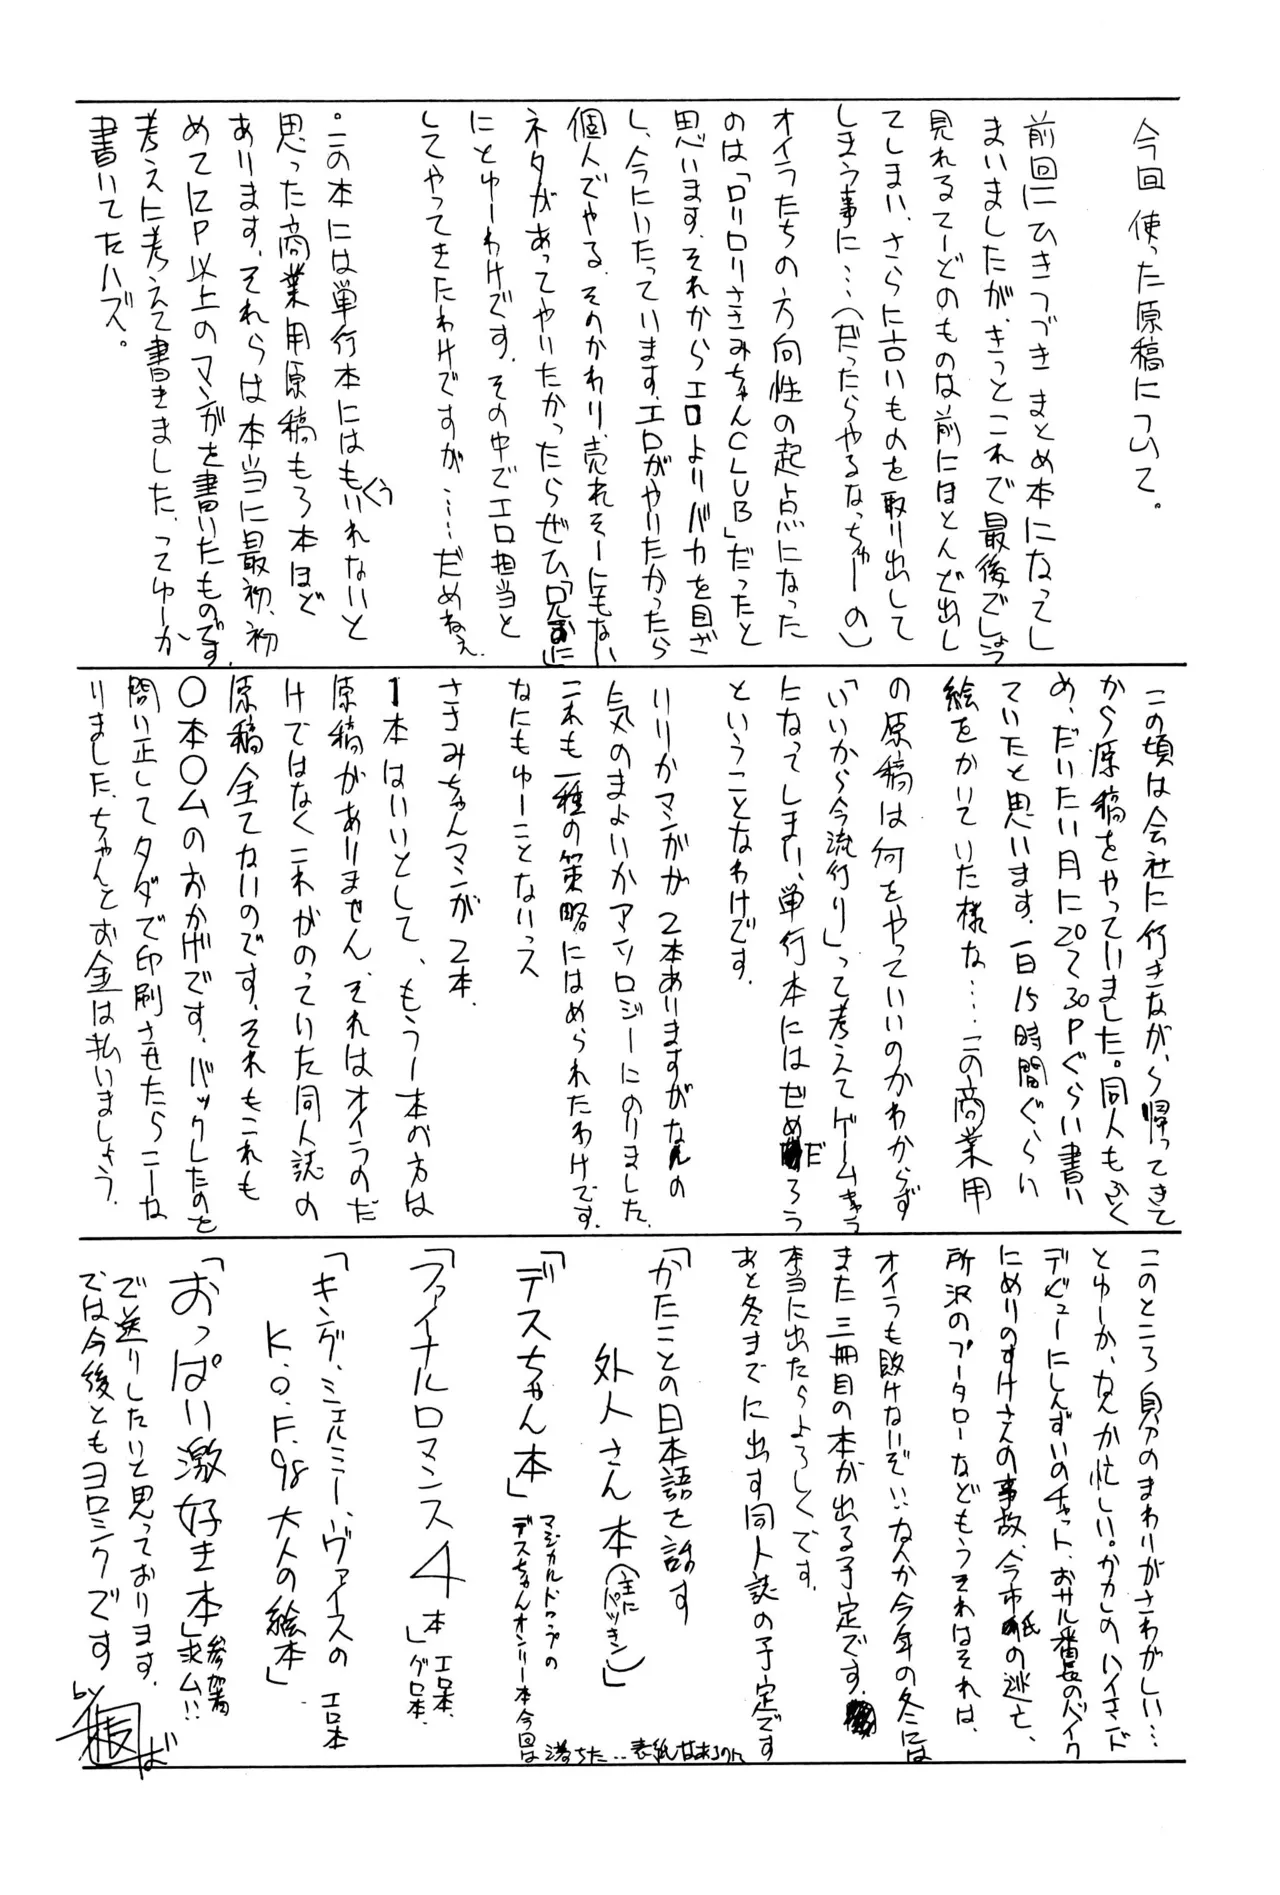 今回使った原稿について。
前回にひきつづきまとめ本になってし
まいましたが、きっとこれで最後でしょう
見れるてーどのものは前にほとんど出し
てしまい、さらに古いものを取り出して
しまう事に…(だったらやるなっちゅーの)
オイラたちの方向性の起点になった
のは「ロリロリささみちゃんCLUB」だったと
思います、それからエロよりバカを目ざ
し、今にいたっています、エロがやりたかったら
個人でやる、そのかわり売れそーにもない
ネタがあってやりたかったらぜひ「兄
にとゆーわけです、その中でエロ担当と
してやってきたわけですが……だめねぇ
。この本には単行本にはもういれないと
思った商業用原稿も3本ほど
あります、それらは本当に最初、初
めて12P以上のマンガを書いたものです、
考えに考えて書きました、ってゆーか
書いてたハズ。
この頃は会社に行きながら帰ってきて
から原稿をやっていました。同人もふく
め、だいたい月に20〜30Pぐらい書い
ていたと思います、一日15時間ぐらい
絵をかいていた様な……この商業用
の原稿は何をやっていいのかわからず
「いいから今流行り」って考えてゲームキャラ
になってしまい、単行本にはぜめだろう
ということなわけです、
リリカマンガが2本ありますがなんの
気のまよいかアンソロジーにのりました、
これも一種の策略にはめられたわけです、
なにもゆーことないっス
ささみちゃんマンガ2本、
1本はいいとして、もう一本の方は
原稿がありません、それはオイラのだ
けではなくこれがのっていた同人誌の
原稿全てないのです、それもこれも
〇本〇ムのおかげです、バックしたのと
問い正してタダで印刷させたらこーな
りました、ちゃんとお金は払いましょう、
このところ自分のまわりがさわがしい…
とゆーか、なんか忙しい。かかしのハイエンド
デビューにしんずいのチャット、おサル番長のバイク
にめりのすけさんの事故、今市の逃亡、
所沢のプータローなどもうそれはそれは、
オイラも敗けないぞい∵なんか今年の冬には
また三冊目の本が出る予定です、
本当に出たらよろしくです、
あと冬までに出す同人誌の予定です
「かたことの日本語を話す
外人さん本(主にパツキン)」
「デスちゃん本」マジカルドロップの
デスちゃんオンリー本今回は落ちた‥表紙はあるのに
「ファイナルロマンス4本」エロ本、グロ本、
「キング、シェルミー、ヴァイスのエロ本
K.O.F.98大人の絵本」
「おっぱい激好き本」参加者求ム!!
で送りしたいと思っております、
では今後ともヨロシクです
by